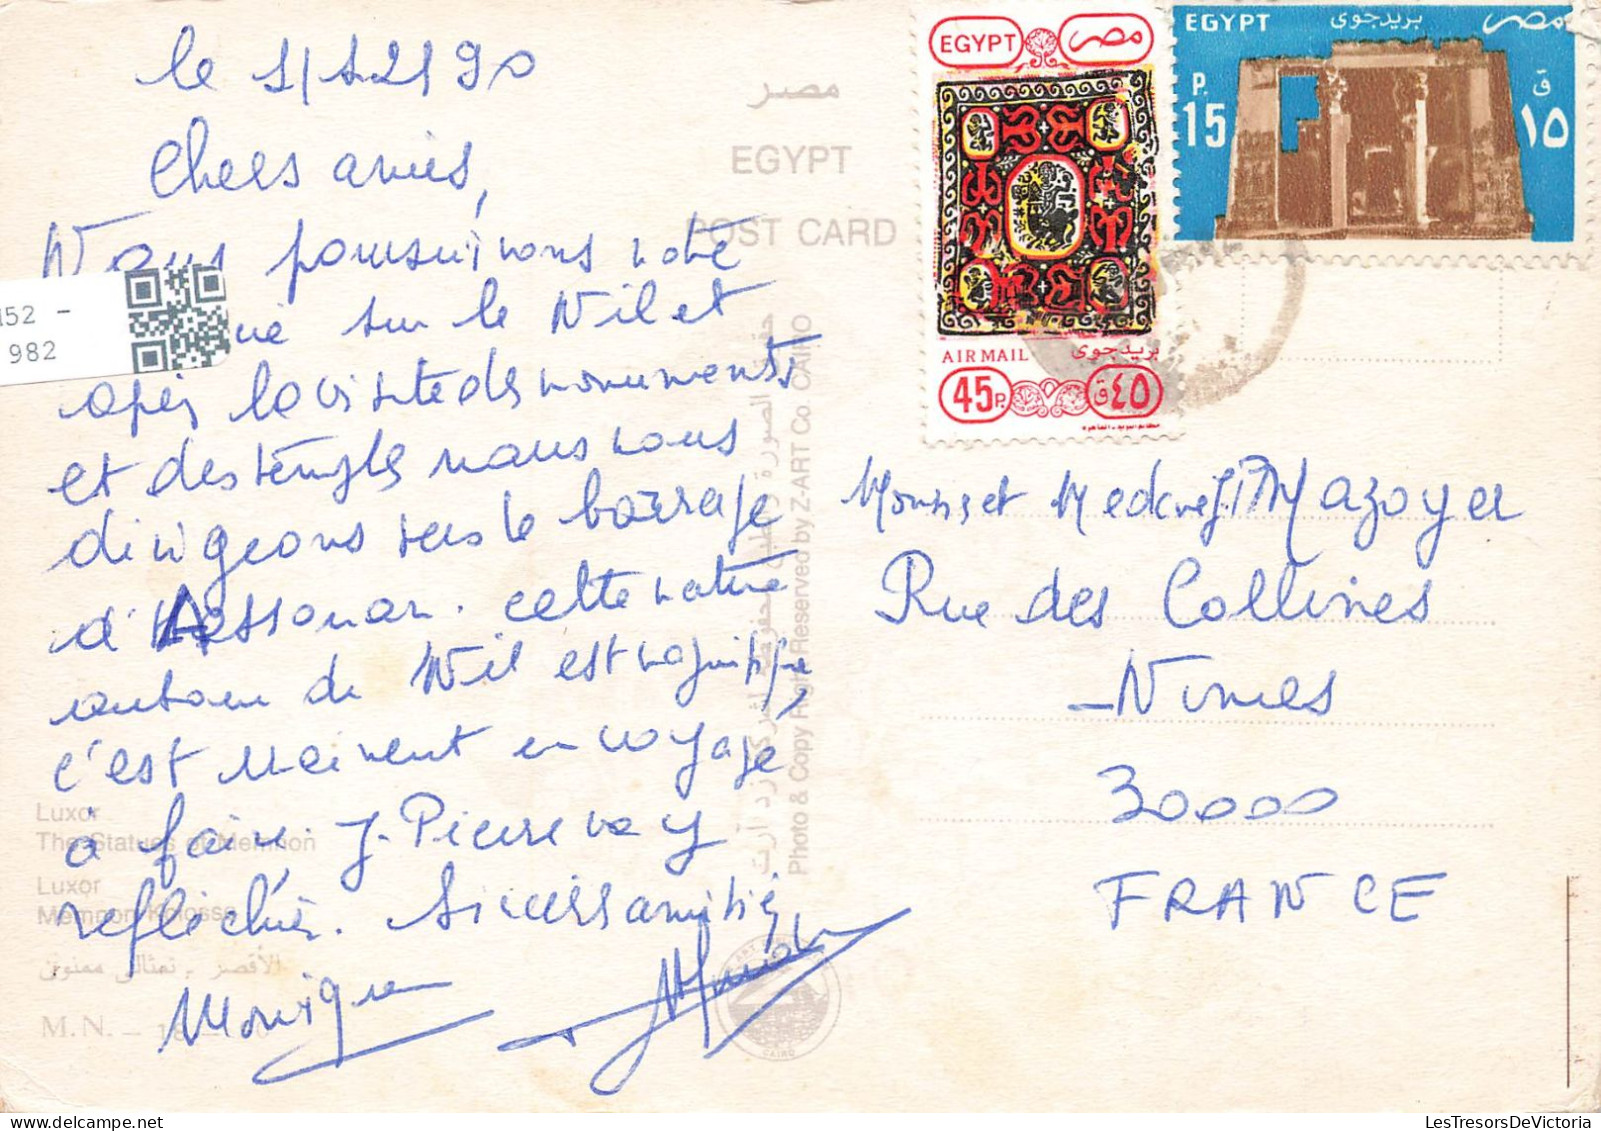 le 1/12/90
Chers amis,
Nous poursuivons notre
sur le Nil et
après la visite des monuments
et des temples nous nous
dirigeons vers le barrage
d'Assouan. cette nature
autour du Nil est magnifique,
c'est vraiment en voyage
à faire. J. Pierre va y
réfléchir. Sincères amitiés
Monique
مصر
EGYPT
POST CARD
حقوق الصورة والطبع محفوظة لشركة زد آرت
Photo & Copy Right Reserved by Z-ART Co. CAIRO
Luxor
The Statues of Memnon
Luxor
Memnon Kolosse
الأقصر - تمثالى ممنون
M.N. - 18 -
CAIRO
52 -
982
EGYPT مصر
AIR MAIL بريد جوى
45 P. ٤٥ ق
EGYPT بريد جوى مصر
P. 15 ق ١٥
Mazoyer
Rue des Collines
-Nimes
30000
FRANCE
LesTresorsDeVictoria